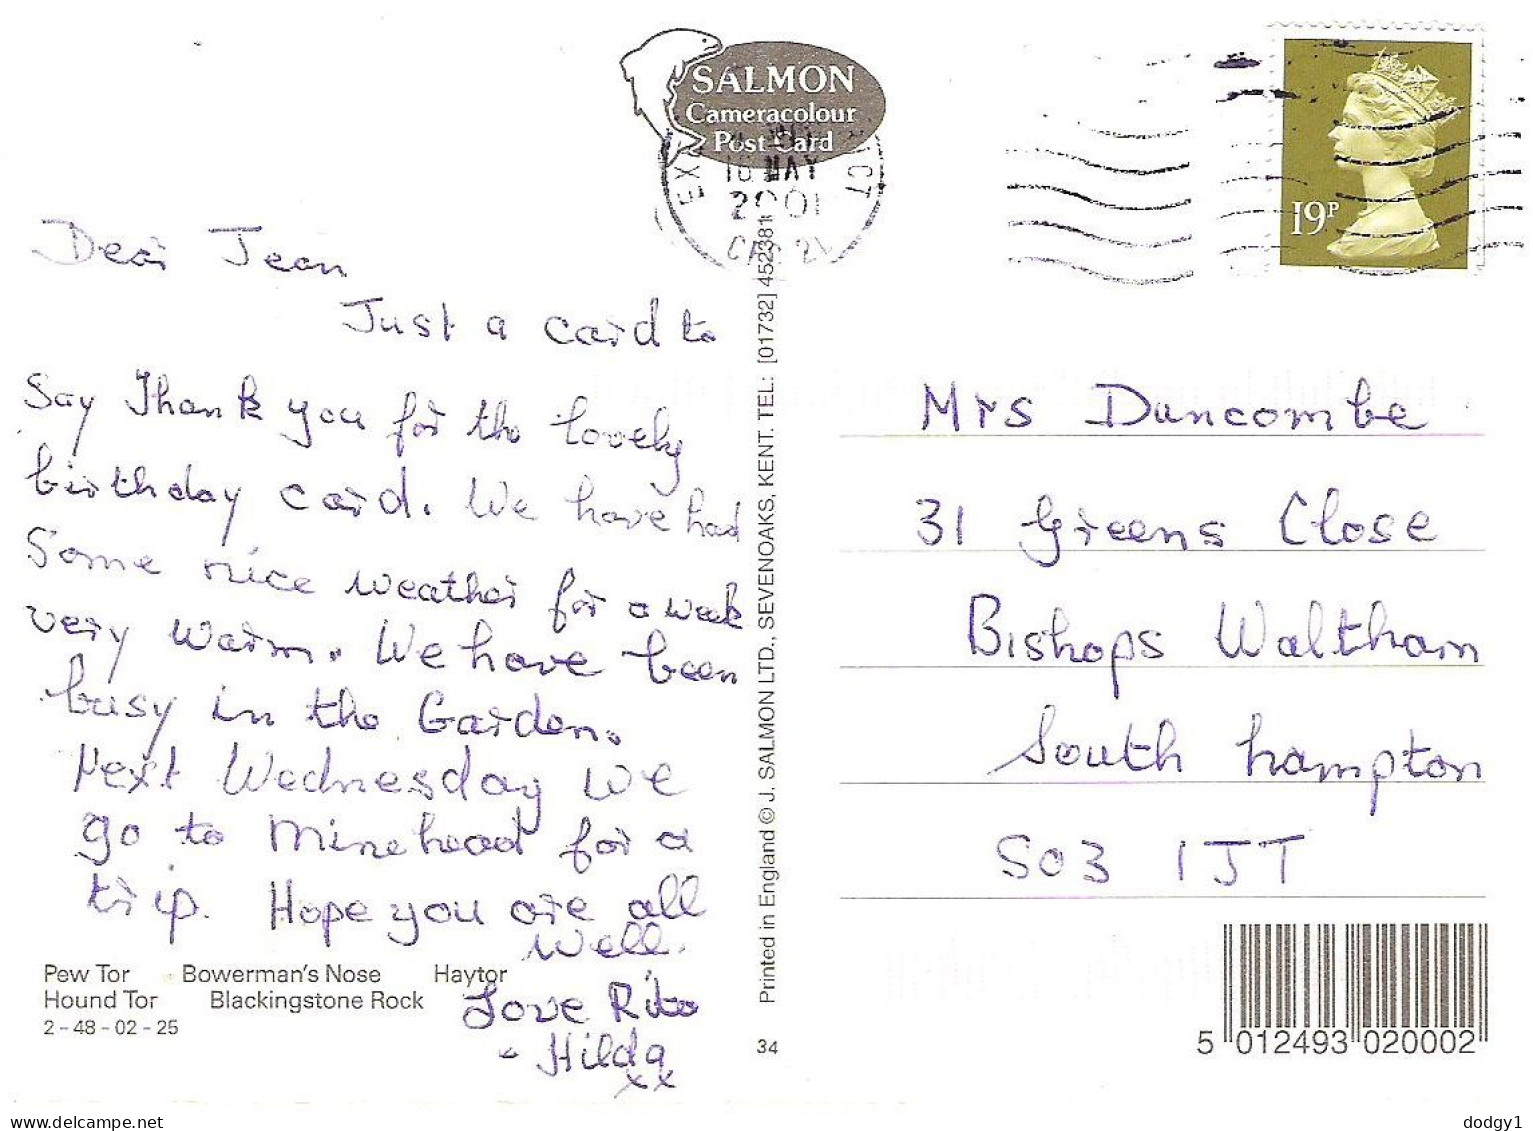 SALMON
Cameracolour
Post Card
MAY
2001
19P
Dear Jean
Just a card to
Say Thank you for the lovely
birthday card. We have had
Some nice weather for a week
very warm. We have been
busy in the Garden.
Next Wednesday we
go to Minehead for a
trip. Hope you are all
well.
Love Rita
- Hilda
xx
Pew Tor Bowerman's Nose Haytor
Hound Tor Blackingstone Rock
2 - 48 - 02 - 25
Printed in England © J. SALMON LTD., SEVENOAKS, KENT. TEL: [01732] 452381
34
Mrs Duncombe
31 Greens Close
Bishops Waltham
South hampton
SO3 1JT
5 012493 020002
www.delcampe.net
dodgy1